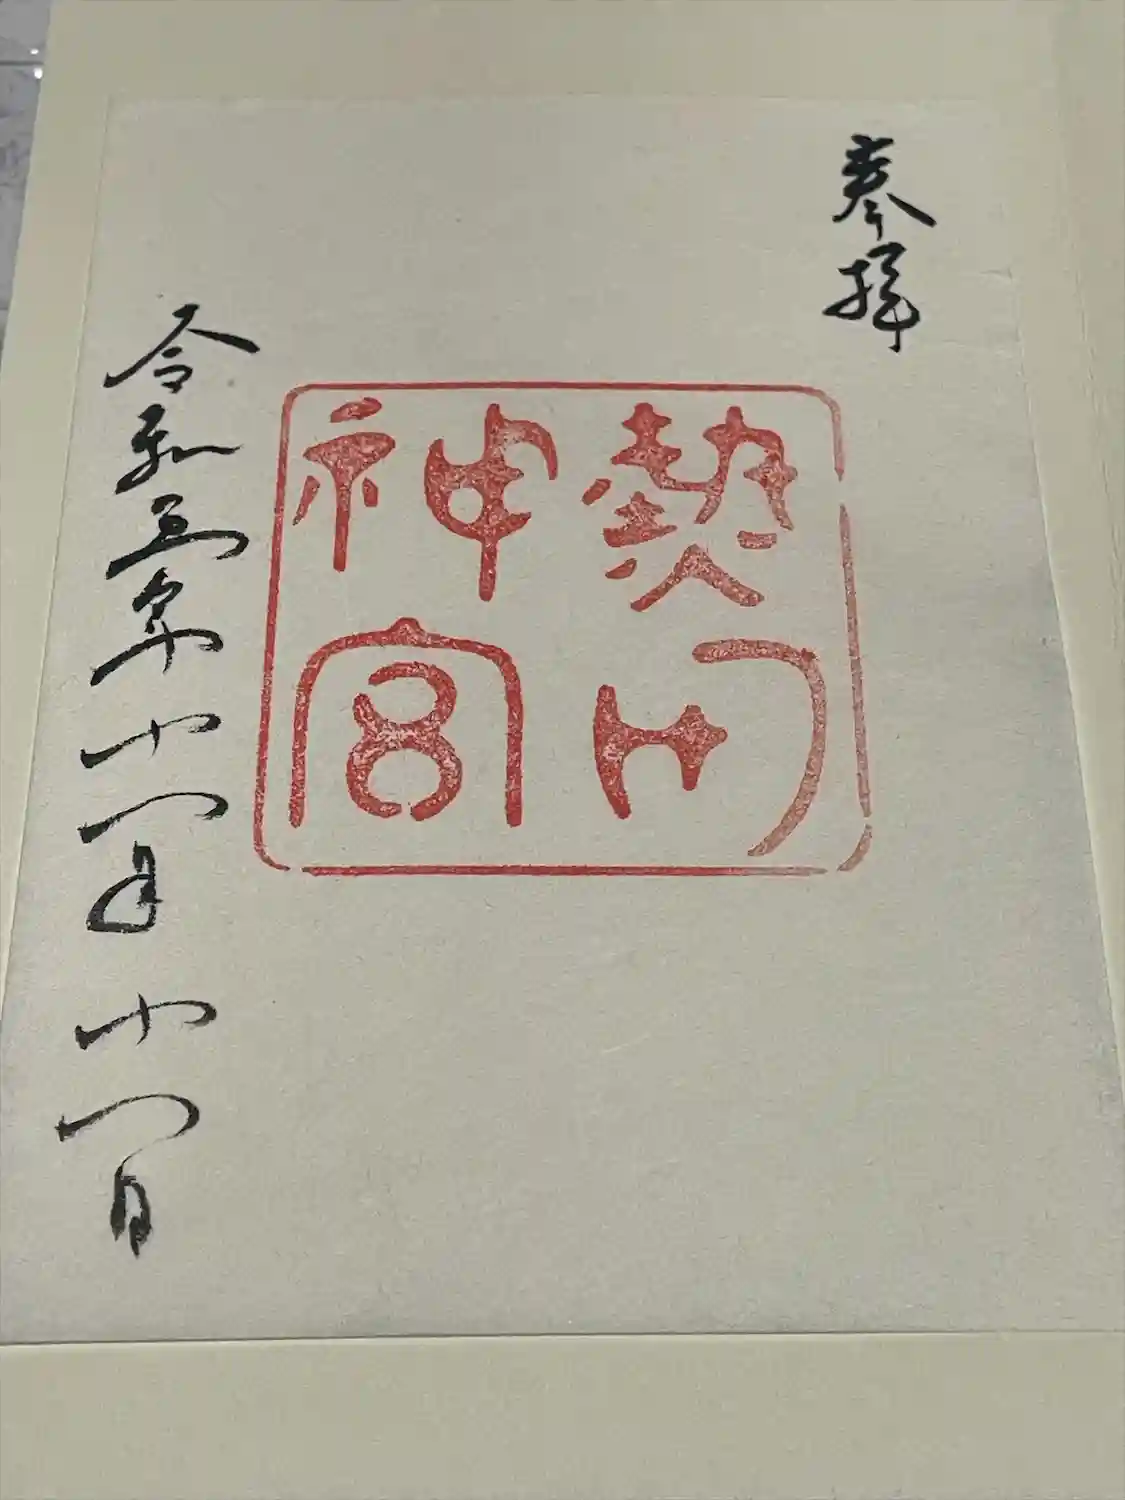 奉拝
熱田
神宮
令和三年十一月十一日